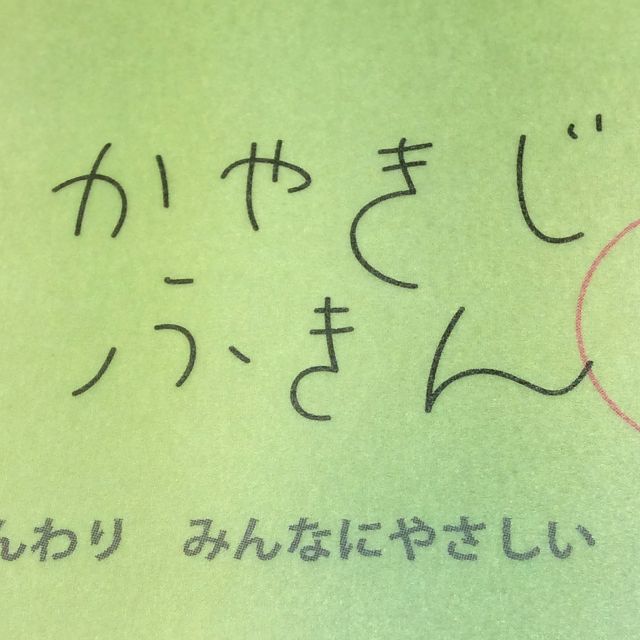 かやきじ
ふきん
んわり みんなにやさしい